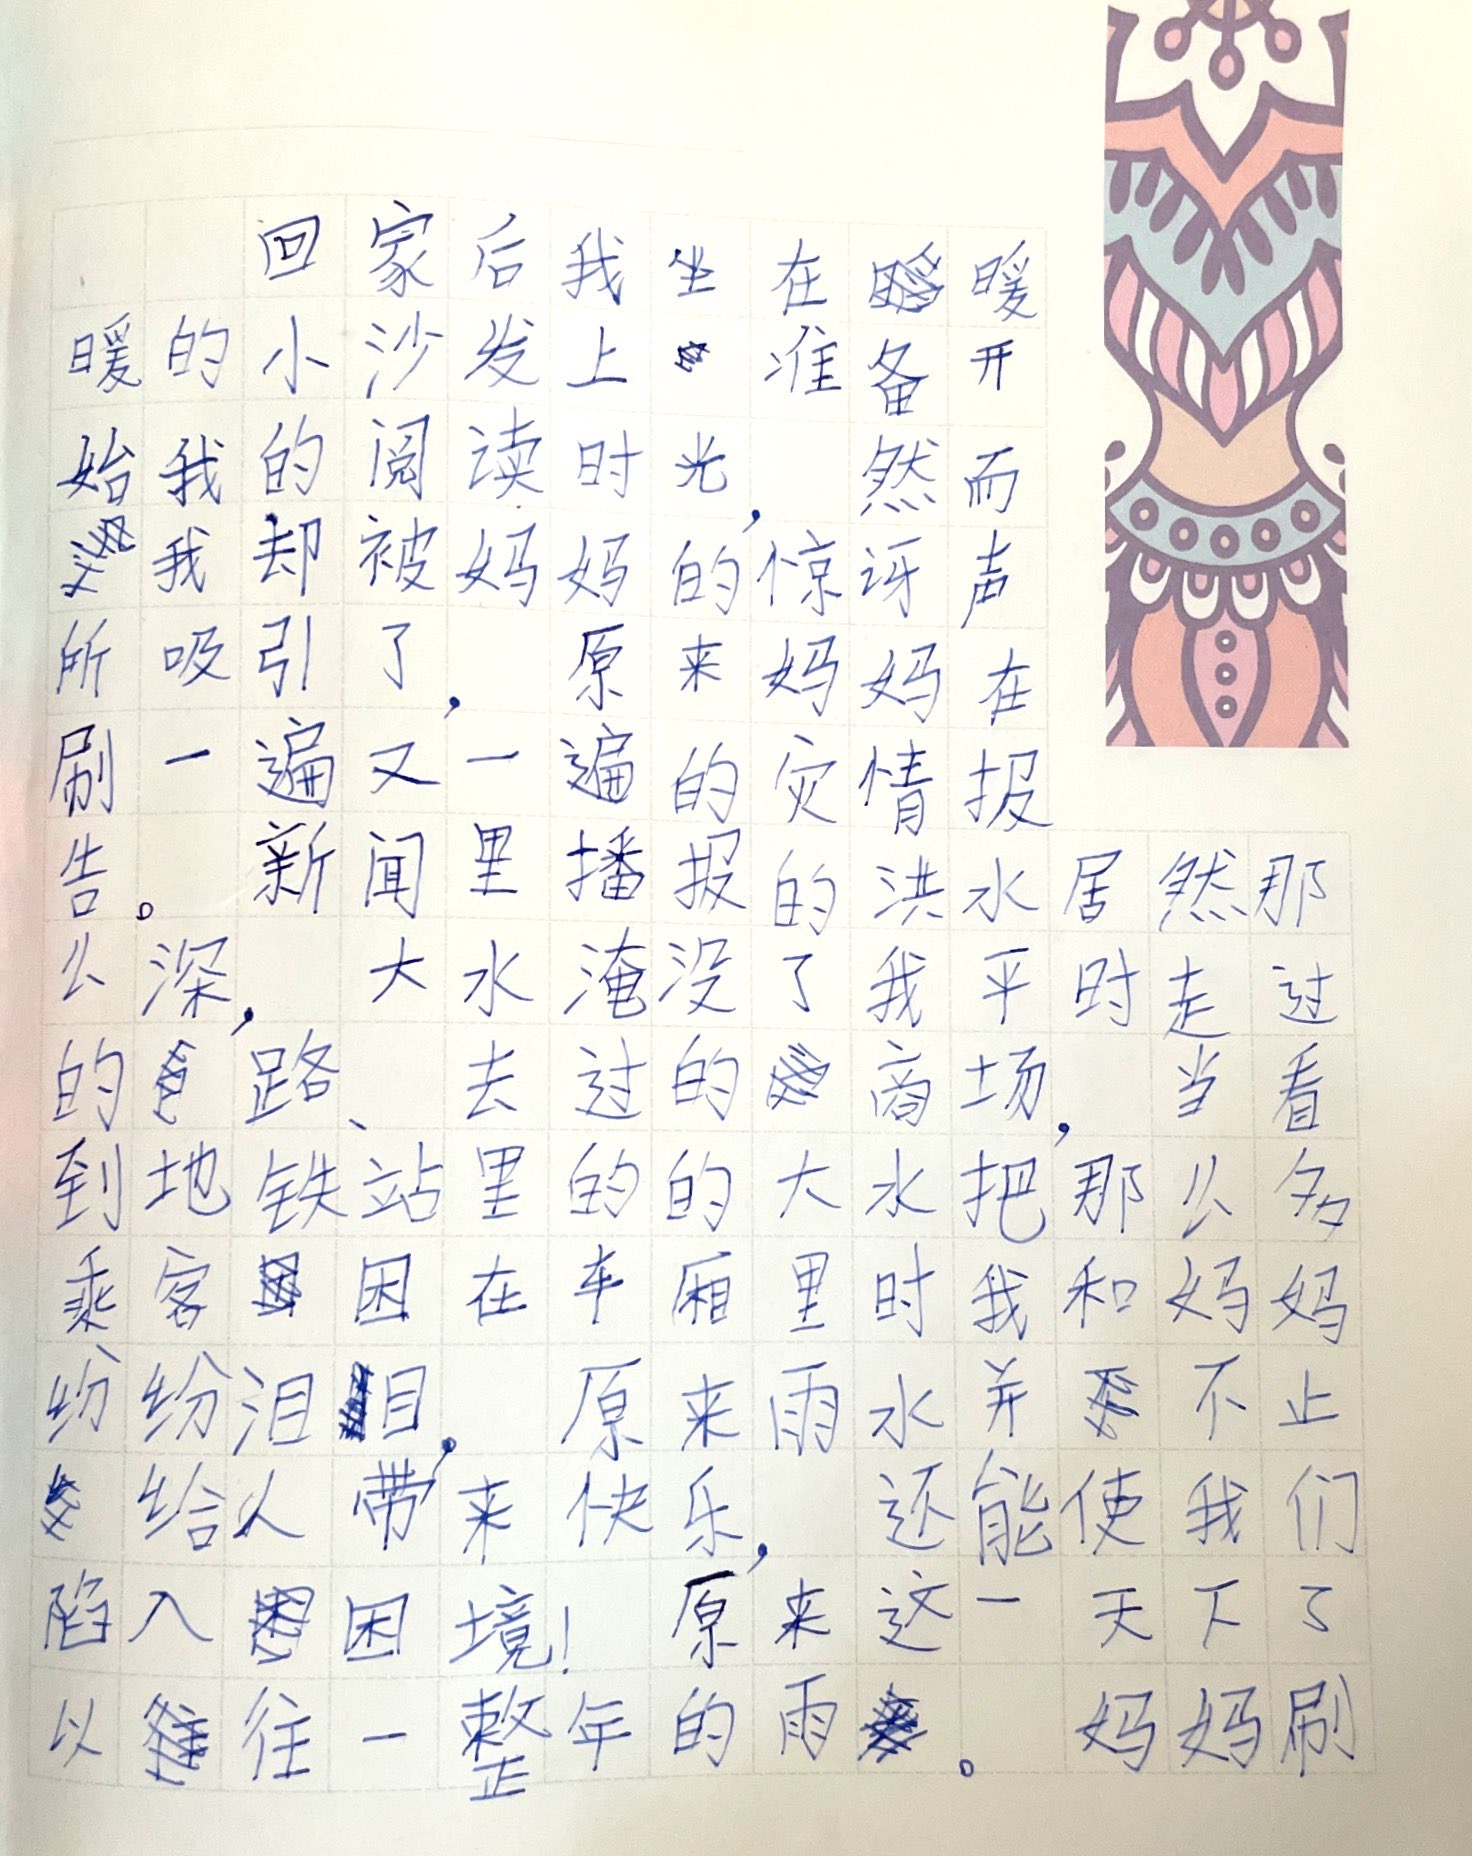 回家后我坐在暖
暖的小沙发上准备开
始我的阅读时光，然而
我却被妈妈的惊讶声
所吸引了，原来妈妈在
刷一遍又一遍的灾情报
告。新闻里播报的洪水居然那
么深，大水淹没了我平时走过
的路、去过的商场，当看
到地铁站里的的大水把那么多
乘客困在车厢里时我和妈妈
纷纷泪目，原来雨水并不止
给人带来快乐，还能使我们
陷入困境！原来这一天下了
以往一整年的雨。妈妈刷